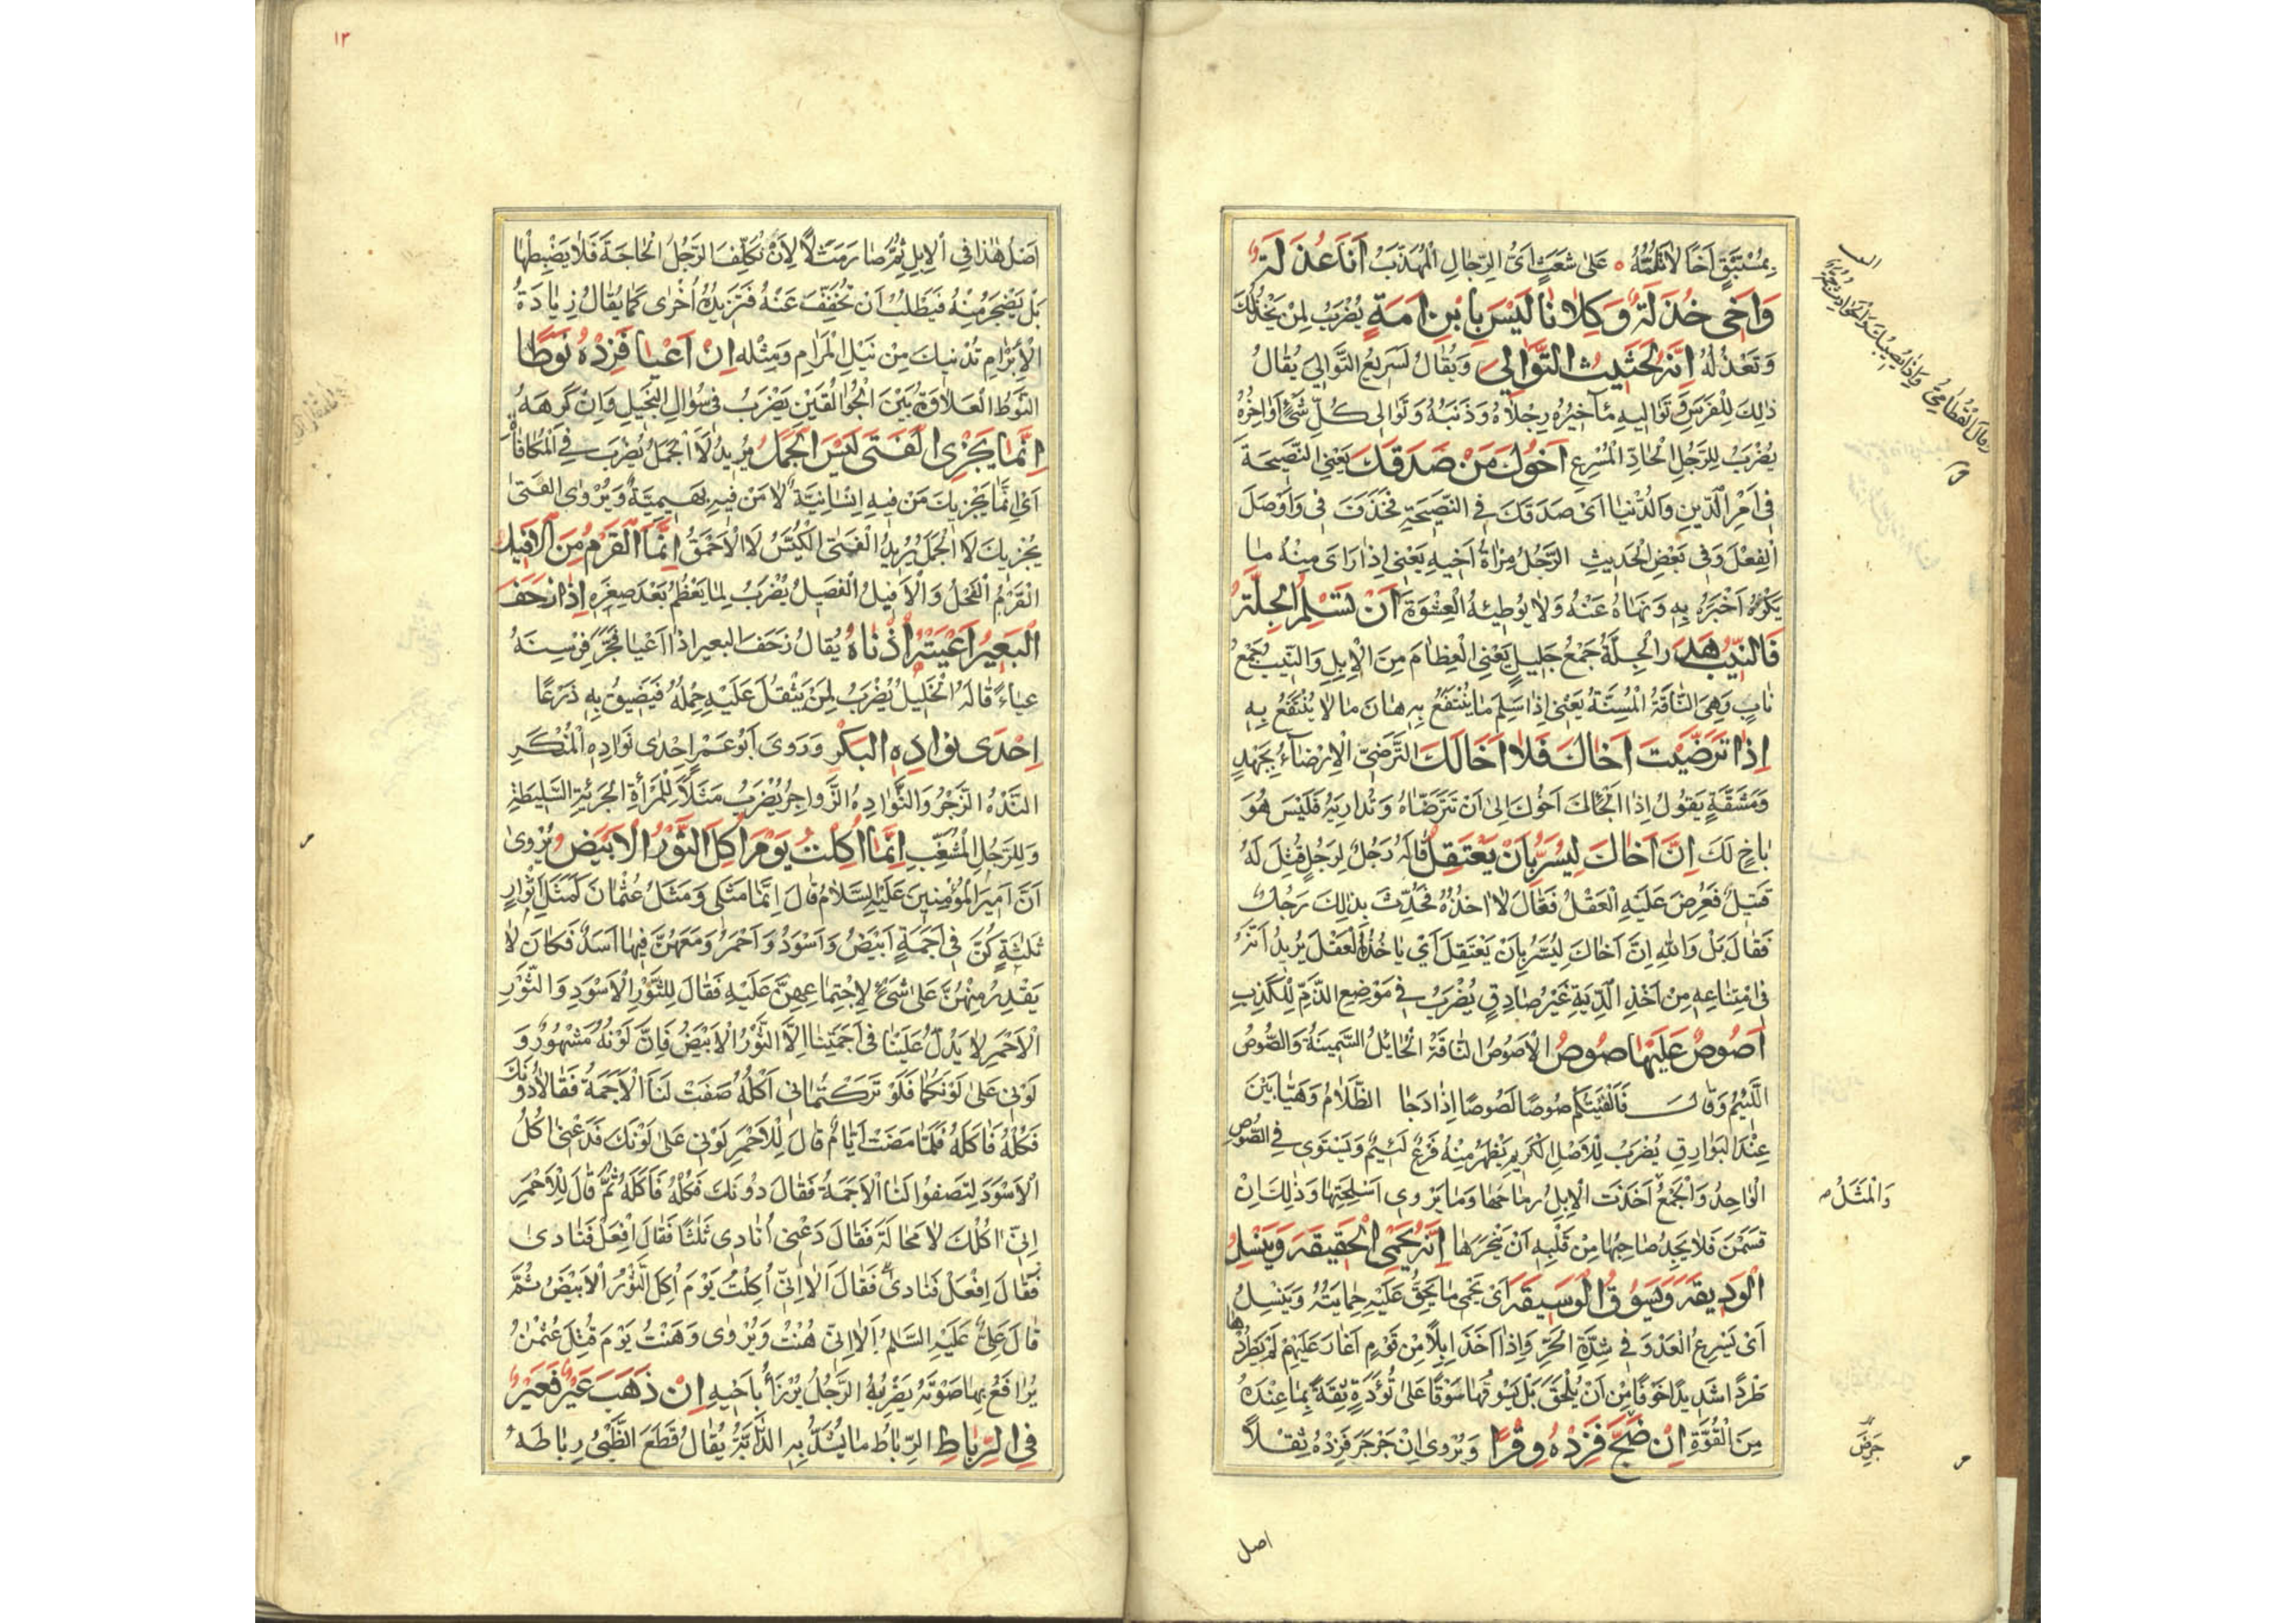 بِمُسْتَبْقٍ اَخًا لَا تَلُمُّهُ ۰ عَلٰى شَعَثٍ اَىُّ الرِّجَالِ الْمُهَذَّبُ اَنَا عُذَلَةٌ
وَاَخِى خُذَلَةٌ وَكِلَانَا لَيْسَ بِابْنِ اَمَةٍ يُضْرَبُ لِمَنْ يَخْذُلُكَ
وَتَعْذُلُهُ اِنَّهُ لَحَثِيثُ التَّوَالِى وَيُقَالُ لَسَرِيعُ التَّوَالِى يُقَالُ
ذٰلِكَ لِلْفَرَسِ وَتَوَالِيهِ مَآخِيرُهُ رِجْلَاهُ وَذَنَبُهُ وَتَوَالِى كُلِّ شَىْءٍ اَوَاخِرُهُ
يُضْرَبُ لِلرَّجُلِ الْجَادِّ الْمُسْرِعِ اَخُوكَ مَنْ صَدَقَكَ يَعْنِى النَّصِيحَةَ
فِى اَمْرِ الدِّينِ وَالدُّنْيَا اَىْ صَدَقَكَ فِى النَّصِيحَةِ فَحَذَفَ فِى وَاَوْصَلَ
الْفِعْلَ وَفِى بَعْضِ الْحَدِيثِ الرَّجُلُ مِرْاٰةُ اَخِيهِ يَعْنِى اِذَا رَاٰى مِنْهُ مَا
يَكْرَهُ اَخْبَرَهُ بِهِ وَنَهَاهُ عَنْهُ وَلَا يُوطِئُهُ الْعِشْوَةَ اَنْ تَسْلَمِ الْجِلَّةُ
فَالنِّيبُ هَدَرٌ الْجِلَّةُ جَمْعُ جَلِيلٍ يَعْنِى الْعِظَامَ مِنَ الْاِبِلِ وَالنِّيبُ جَمْعُ
نَابٍ وَهِىَ النَّاقَةُ الْمُسِنَّةُ يَعْنِى اِذَا سَلِمَ مَا يُنْتَفَعُ بِهِ هَانَ مَا لَا يُنْتَفَعُ بِهِ
اِذَا تَرَضَّيْتَ اَخَاكَ فَلَا اَخَا لَكَ التَّرَضِّى الْاِرْضَاءُ بِجَهْدٍ
وَمَشَقَّةٍ يَقُولُ اِذَا اَلْجَاَكَ اَخُوكَ اِلٰى اَنْ تَتَرَضَّاهُ وَتُدَارِيَهُ فَلَيْسَ هُوَ
بِاَخٍ لَكَ اِنَّ اَخَاكَ لَيُسَرُّ بِاَنْ يَعْتَقِلَ قَالَهُ رَجُلٌ لِرَجُلٍ قُتِلَ لَهُ
قَتِيلٌ فَعُرِضَ عَلَيْهِ الْعَقْلُ فَقَالَ لَا اٰخُذُهُ فَحَدَّثَ بِذٰلِكَ رَجُلٌ
فَقَالَ بَلْ وَاللهِ اِنَّ اَخَاكَ لَيُسَرُّ بِاَنْ يَعْتَقِلَ اَىْ يَاْخُذُ الْعَقْلَ يُرِيدُ اَنَّهُ
فِى امْتِنَاعِهِ مِنْ اَخْذِ الدِّيَةِ غَيْرُ صَادِقٍ يُضْرَبُ فِى مَوْضِعِ الذَّمِّ لِلْكَذِبِ
اَصُوصٌ عَلَيْهَا صُوصٌ الْاَصُوصُ النَّاقَةُ الْحَائِلُ السَّمِينَةُ وَالصُّوصُ
اللَّئِيمُ وَقَالَ فَاَلْفَيْتُكُمْ صُوصًا لُصُوصًا اِذَا دَجَا الظَّلَامُ وَهَيَّابِينَ
عِنْدَ الْبَوَارِقِ يُضْرَبُ لِلْاَصْلِ الْكَرِيمِ يَظْهَرُ مِنْهُ فَرْعٌ لَئِيمٌ وَيَسْتَوِى فِى الصُّوصِ
الْوَاحِدُ وَالْجَمْعُ اَخَذَتِ الْاِبِلُ رِمَاحَهَا وَمَا يُرْوٰى اَسْلِحَتَهَا وَذٰلِكَ اَنْ
تَسْمَنَ فَلَا يَجِدُ صَاحِبُهَا مِنْ قَلْبِهِ اَنْ يَنْحَرَهَا اِنَّهُ يَحْمِى الْحَقِيقَةَ وَيَنْسِلُ
الْوَدِيقَةَ وَيَسُوقُ الْوَسِيقَةَ اَىْ يَحْمِى مَا يَحِقُّ عَلَيْهِ حِمَايَتُهُ وَيَنْسِلُ
اَىْ يُسْرِعُ الْعَدْوَ فِى شِدَّةِ الْحَرِّ وَاِذَا اَخَذَ اِبِلًا مِنْ قَوْمٍ اَغَارَ عَلَيْهِمْ لَمْ يَطْرُدْهَا
طَرْدًا شَدِيدًا خَوْفًا مِنْ اَنْ يُلْحَقَ بَلْ يَسُوقُهَا سَوْقًا عَلٰى تُؤَدَةٍ ثِقَةً بِمَا عِنْدَهُ
مِنَ الْقُوَّةِ اِنْ ضَجَّ فَزِدْهُ وِقْرًا وَيُرْوٰى اِنْ جَرْجَرَ فَزِدْهُ ثِقْلًا
وَالْمَثَلُ
اصل
۱۲
اَصْلُ هٰذَا فِى الْاِبِلِ ثُمَّ صَارَ مَثَلًا لِاَنْ تُكَلِّفَ الرَّجُلَ الْحَاجَةَ فَلَا يَضْبِطُهَا
بَلْ يَضْجَرُ مِنْهُ فَيَطْلُبُ اَنْ تُخَفِّفَ عَنْهُ فَتَزِيدُهُ اُخْرٰى كَمَا يُقَالُ زِيَادَةُ
الْاِبْرَامِ تُدْنِيكَ مِنْ نَيْلِ الْمَرَامِ وَمِثْلُهُ اِنْ اَعْيَا فَزِدْهُ نَوْطًا
النَّوْطُ الْعِلَاوَةُ بَيْنَ الْجُوَالِقَيْنِ يُضْرَبُ فِى سُؤَالِ الْبَخِيلِ وَاِنْ كَرِهَهُ
اِنَّمَا يَجْزِى الْفَتٰى لَيْسَ الْجَمَلُ يُرِيدُ لَا الْجَمَلُ يُضْرَبُ فِى الْمُكَافَاَةِ
اَىْ اِنَّمَا يَجْزِيكَ مَنْ فِيهِ اِنْسَانِيَّةٌ لَا مَنْ فِيهِ بَهِيمِيَّةٌ وَيُرْوٰى الْفَتٰى
يَجْزِيكَ لَا الْجَمَلُ يُرِيدُ الْفَتٰى الْكَيِّسُ لَا الْاَحْمَقُ اِنَّمَا الْقَرْمُ مِنَ الْاَفِيلِ
الْقَرْمُ الْفَحْلُ وَالْاَفِيلُ الْفَصِيلُ يُضْرَبُ لِمَا يَعْظُمُ بَعْدَ صِغَرِهِ اِذَا زَحَفَ
الْبَعِيرُ اَعْيَتْهُ اُذُنَاهُ يُقَالُ زَحَفَ الْبَعِيرُ اِذَا اَعْيَا فَجَرَّ فِرْسِنَهُ
عَيَاءً قَالَهُ الْخَلِيلُ يُضْرَبُ لِمَنْ يَثْقُلُ عَلَيْهِ حِمْلُهُ فَيَضِيقُ بِهِ ذَرْعًا
اِحْدٰى نَوَادِهِ الْبَكْرِ وَرَوٰى اَبُو عَمْرٍو اِحْدٰى نَوَادِهِ النُّكْرِ
النَّدْهُ الزَّجْرُ وَالنَّوَادِهُ الزَّوَاجِرُ يُضْرَبُ مَثَلًا لِلْمَرْاَةِ الْجَرِيئَةِ السَّلِيطَةِ
وَلِلرَّجُلِ الْمُشَغِّبِ اِنَّمَا اُكِلْتُ يَوْمَ اُكِلَ الثَّوْرُ الْاَبْيَضُ يُرْوٰى
اَنَّ اَمِيرَ الْمُؤْمِنِينَ عَلَيْهِ السَّلَامُ قَالَ اِنَّمَا مَثَلِى وَمَثَلُ عُثْمَانَ كَمَثَلِ اَثْوَارٍ
ثَلٰثَةٍ كُنَّ فِى اَجَمَةٍ اَبْيَضُ وَاَسْوَدُ وَاَحْمَرُ وَمَعَهُنَّ فِيهَا اَسَدٌ فَكَانَ لَا
يَقْدِرُ مِنْهُنَّ عَلٰى شَىْءٍ لِاجْتِمَاعِهِنَّ عَلَيْهِ فَقَالَ لِلثَّوْرِ الْاَسْوَدِ وَالثَّوْرِ
الْاَحْمَرِ لَا يَدُلُّ عَلَيْنَا فِى اَجَمَتِنَا اِلَّا الثَّوْرُ الْاَبْيَضُ فَاِنَّ لَوْنَهُ مَشْهُورٌ وَ
لَوْنِى عَلٰى لَوْنِكُمَا فَلَوْ تَرَكْتُمَانِى اٰكُلُهُ صَفَتْ لَنَا الْاَجَمَةُ فَقَالَا دُونَكَ
فَكُلْهُ فَاَكَلَهُ فَلَمَّا مَضَتْ اَيَّامٌ قَالَ لِلْاَحْمَرِ لَوْنِى عَلٰى لَوْنِكَ فَدَعْنِى اٰكُلُ
الْاَسْوَدَ لِتَصْفُوَا لَنَا الْاَجَمَةُ فَقَالَ دُونَكَ فَكُلْهُ فَاَكَلَهُ ثُمَّ قَالَ لِلْاَحْمَرِ
اِنِّى اٰكُلُكَ لَا مَحَالَةَ فَقَالَ دَعْنِى اُنَادِى ثَلٰثًا فَقَالَ اِفْعَلْ فَنَادٰى
فَقَالَ اِفْعَلْ فَنَادٰى فَقَالَ اَلَا اِنِّى اُكِلْتُ يَوْمَ اُكِلَ الثَّوْرُ الْاَبْيَضُ ثُمَّ
قَالَ عَلِىٌّ عَلَيْهِ السَّلٰمُ اَلَا اِنِّى هُنْتُ وَيُرْوٰى وَهَنْتُ يَوْمَ قُتِلَ عُثْمٰنُ
يَرْفَعُ بِهَا صَوْتَهُ يَضْرِبُهُ الرَّجُلُ يُرْزَاُ بِاَخِيهِ اِنْ ذَهَبَ عَيْرٌ فَعَيْرٌ
فِى الرِّبَاطِ الرِّبَاطُ مَا يُشَدُّ بِهِ الدَّابَّةُ يُقَالُ قَطَعَ الظَّبْىُ رِبَاطَهُ